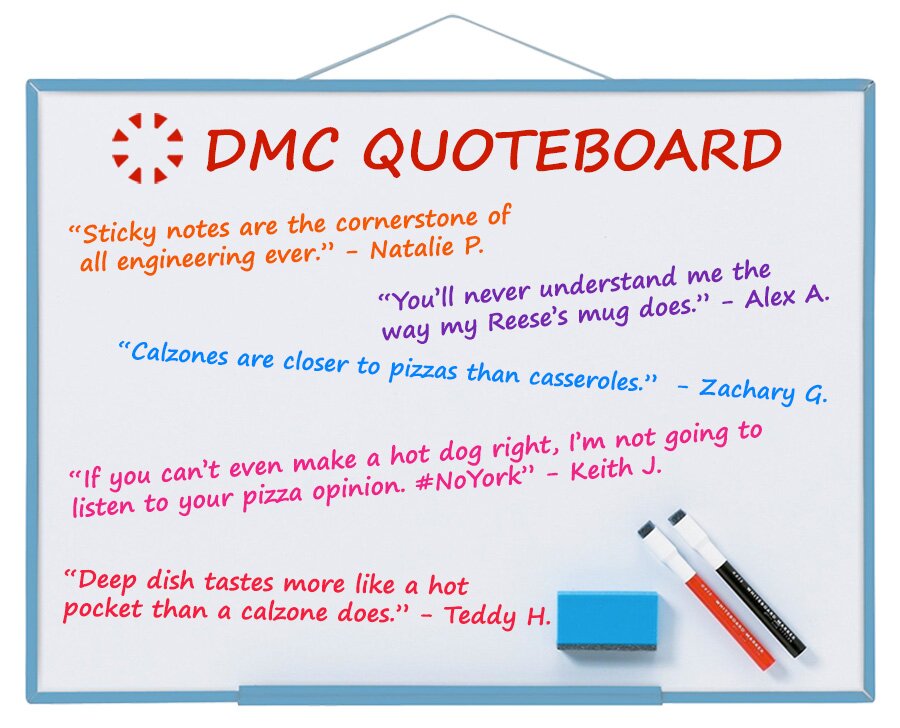 DMC QUOTEBOARD
“Sticky notes are the cornerstone of
all engineering ever.” - Natalie P.
“You’ll never understand me the
way my Reese’s mug does.” - Alex A.
“Calzones are closer to pizzas than casseroles.” - Zachary G.
“If you can’t even make a hot dog right, I’m not going to
listen to your pizza opinion. #NoYork” - Keith J.
“Deep dish tastes more like a hot
pocket than a calzone does.” - Teddy H.
WHITEBOARD MARKER
WHITEBOARD MARKER